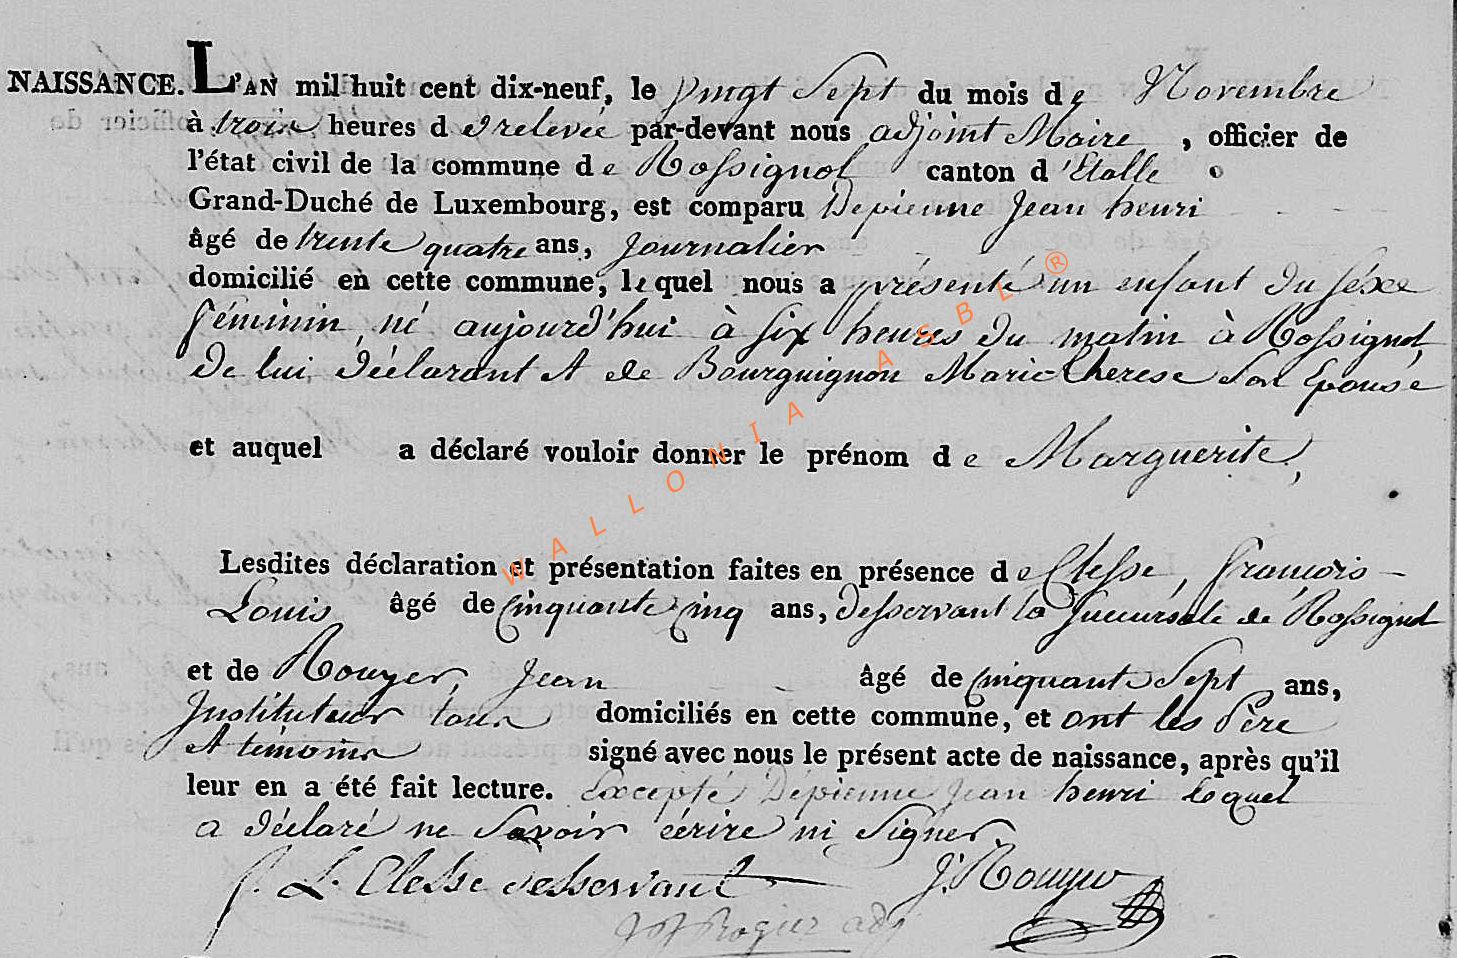 NAISSANCE. L'AN mil huit cent dix-neuf, le vingt Sept du mois de Novembre
à trois heures d e relevée par-devant nous adjoint Maire , officier de
l'état civil de la commune de Rossignol canton d'Etalle
Grand-Duché de Luxembourg, est comparu Depienne Jean henri
âgé de trente quatre ans, Journalier
domicilié en cette commune, lequel nous a présenté un enfant du séxe
féminin né aujourd'hui à six heures du matin à Rossignol,
de lui déclarant et de Bourguignon Marie therese son Epouse
et auquel a déclaré vouloir donner le prénom de Marguerite,
Lesdites déclaration et présentation faites en présence de Clesse, françois
Louis âgé de cinquante cinq ans, desservant la succursale de Rossignol
et de Rouyer Jean âgé de cinquante Sept ans,
Instituteur tous domiciliés en cette commune, et ont les Père
et témoins signé avec nous le présent acte de naissance, après qu'il
leur en a été fait lecture. Excepté Dépienne Jean henri lequel
a déclaré ne Savoir écrire ni Signer.
f. L. Clesse desservant J. Rouyer
Rogier adj
WALLONIA ASBL ®